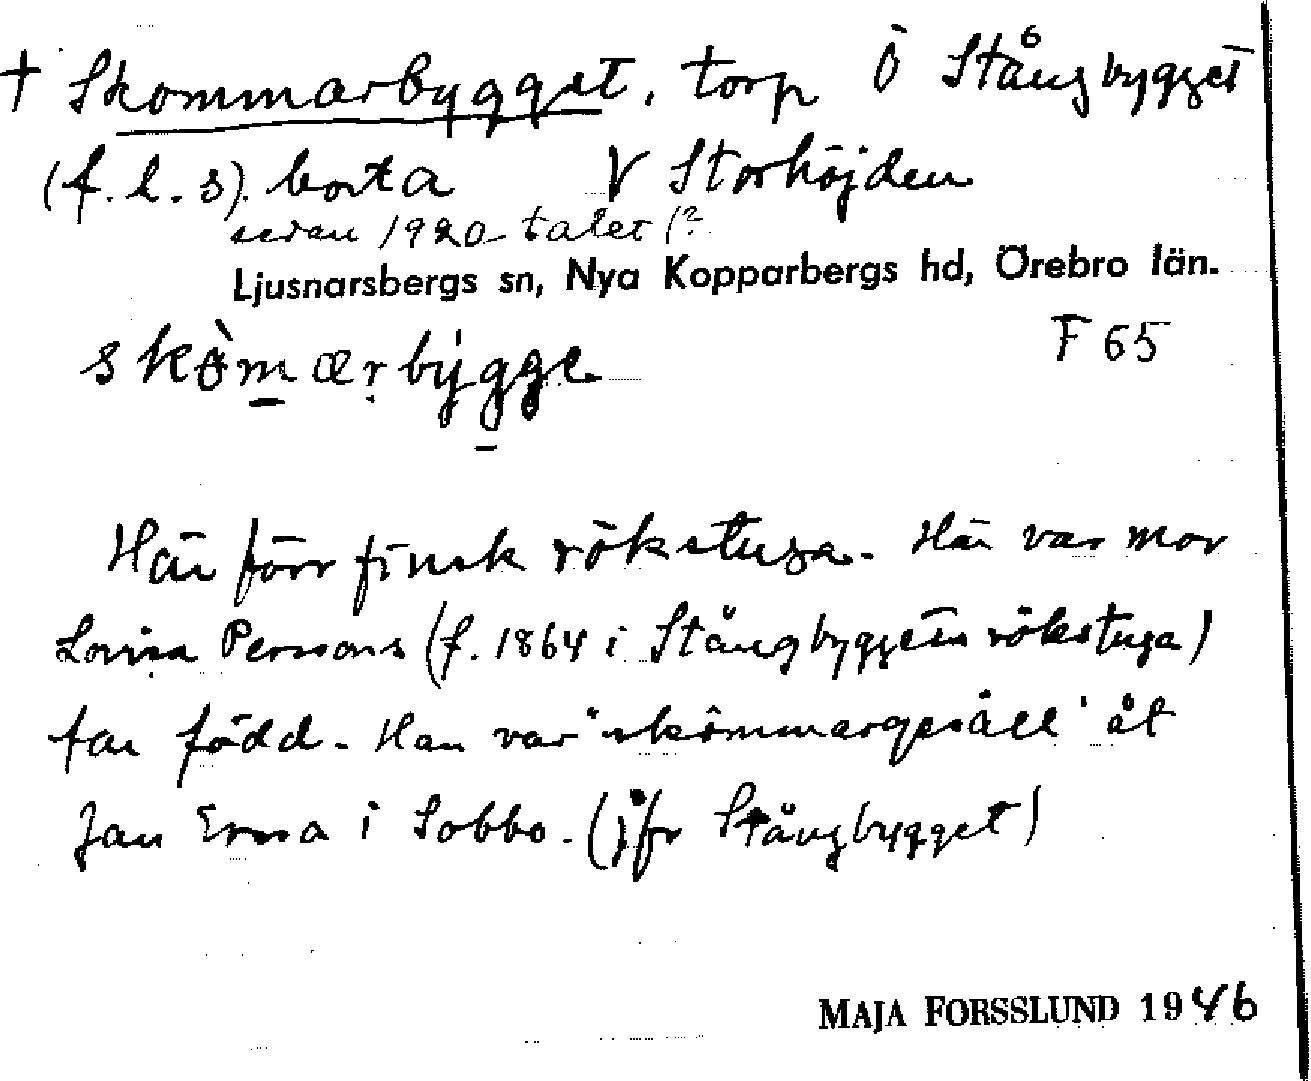 † Skommarbygget, torp Ö Stångbygget
(f.l.s). borta V Storhöjden
sedan 1920-talet (?
Ljusnarsbergs sn, Nya Kopparbergs hd, Örebro län.
skòmærbýgge. F 65
Här förr finsk rökstuga. Här var mor
Lovisa Perssons (f. 1864 i Stångbyggets rökstuga)
far född. Han var "skommargesäll" åt
Jan Ersa i Sobbo. (jfr Stångbygget)
MAJA FORSSLUND 1946